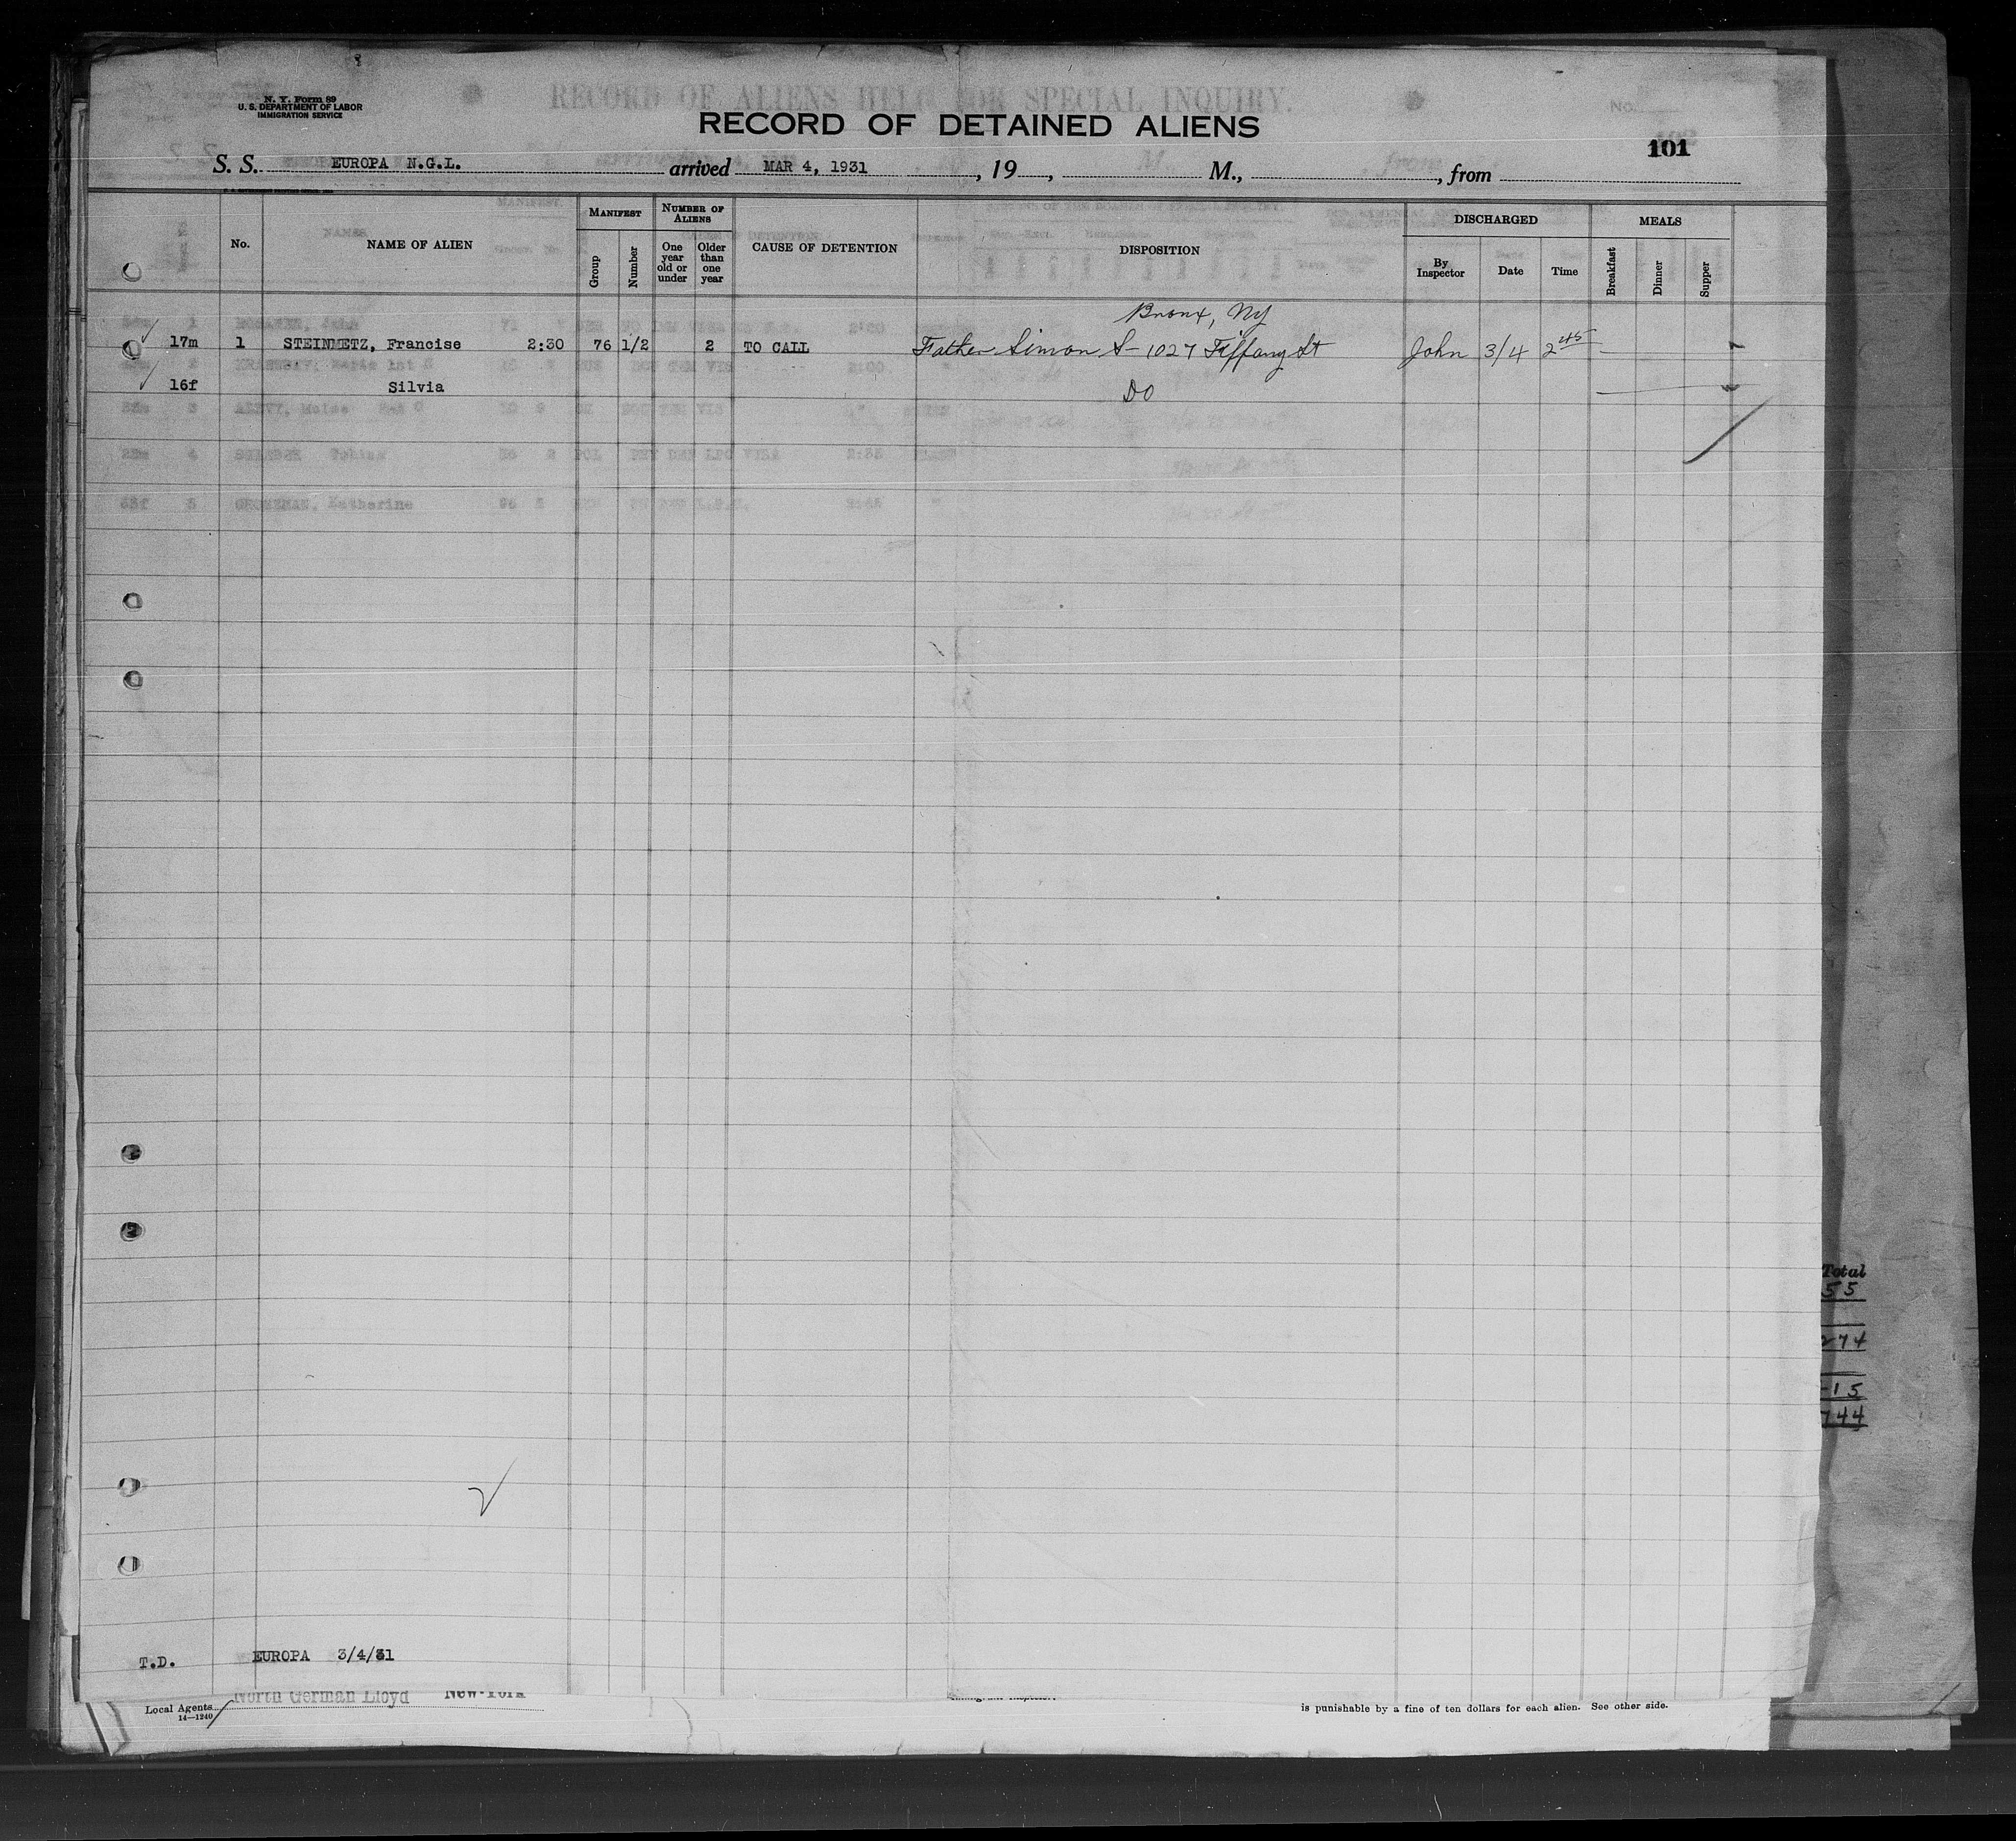 N. Y. Form 89
U. S. DEPARTMENT OF LABOR
IMMIGRATION SERVICE
RECORD OF ALIENS HELD FOR SPECIAL INQUIRY.
No.
RECORD OF DETAINED ALIENS
101
S. S. EUROPA N.G.L. arrived MAR 4, 1931, 19, M., , from
No. NAME OF ALIEN MANIFEST Group Number NUMBER OF ALIENS One year old or under Older than one year CAUSE OF DETENTION DISPOSITION DISCHARGED By Inspector Date Time MEALS Breakfast Dinner Supper
Bronx, NY
17m 1 STEINMETZ, Francise 2:30 76 1/2 2 TO CALL Father Simon S- 1027 Tiffany St John 3/4 2 45
16f Silvia DO
Total
55
274
15
744
T.D. EUROPA 3/4/31
North German Lloyd New-York
Local Agents
14—1240
is punishable by a fine of ten dollars for each alien. See other side.